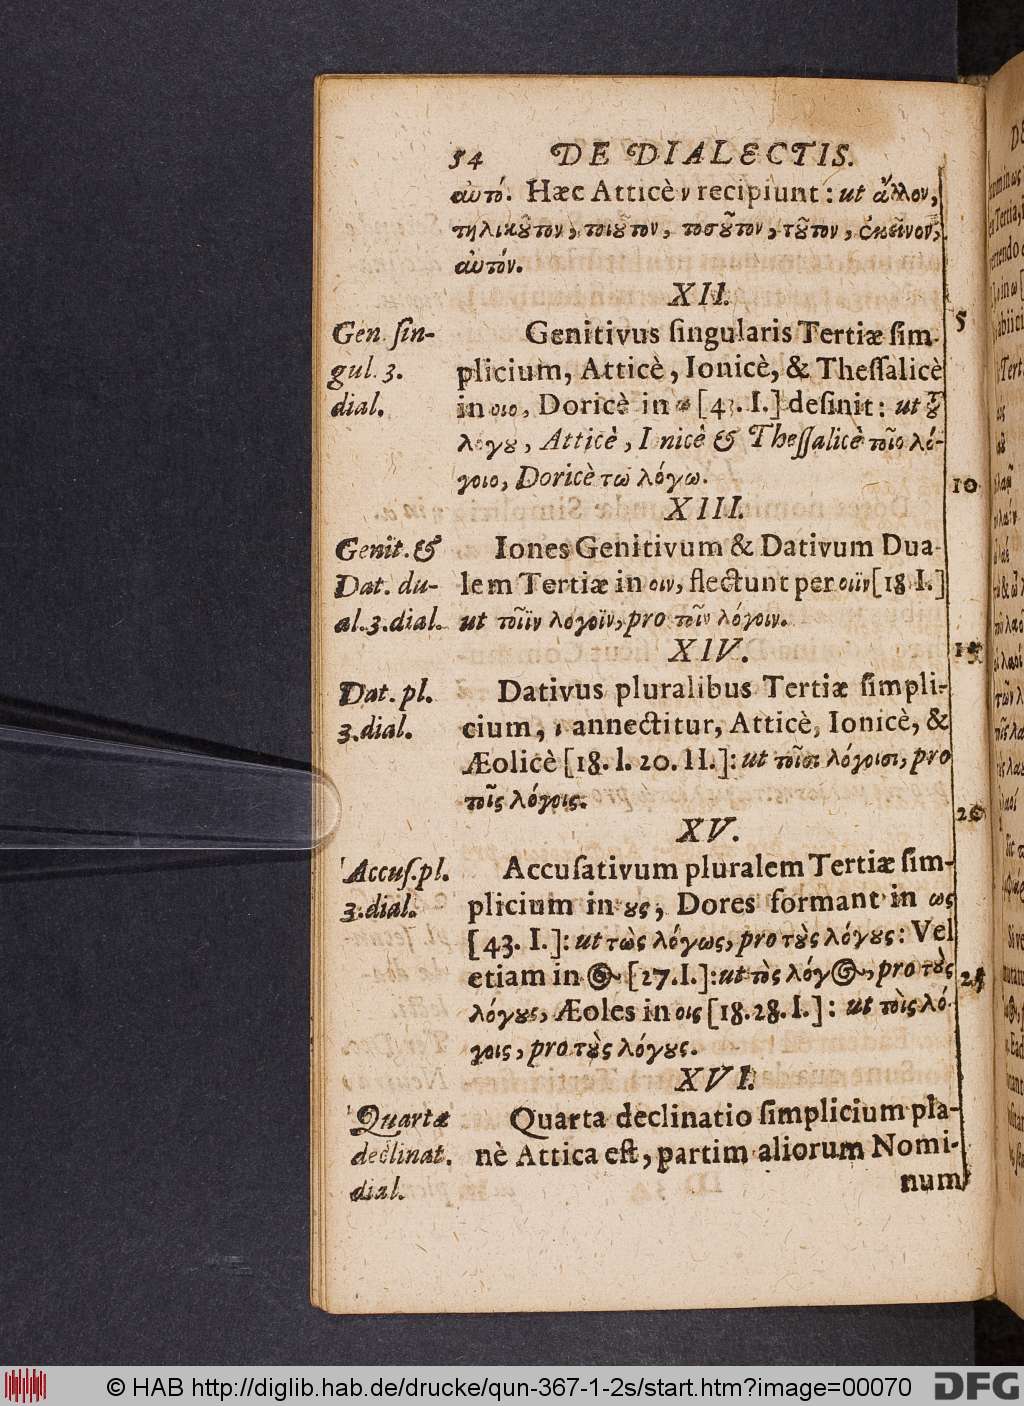 54 DE DIALECTIS.
αὐτό. Hæc Atticè ν recipiunt: ut ἄλλον,
τηλικȣ͂τον, τοιȣ͂τον, τοσȣ͂τον, τȣ͂τον, ἐκεῖνον,
αὐτόν.
XII.
Gen. ſin-
gul. 3.
dial.
Genitivus ſingularis Tertiæ ſim-
plicium, Atticè, Ionicè, & Theſſalicè
in οιο, Doricè in ω [43. I.] deſinit: ut τȣ͂
λόγȣ, Atticè, I nicè & Theſſalicè τοῖο λό-
γοιο, Doricè τω λόγω.
XIII.
Genit. &
Dat. du-
al. 3. dial.
Iones Genitivum & Dativum Dua-
lem Tertiæ in οιν, flectunt per οιϊν [18 I.]
ut τοῖϊν λόγοϊν, pro τοῖν λόγοιν.
XIV.
Dat. pl.
3. dial.
Dativus pluralibus Tertiæ ſimpli-
cium, ι annectitur, Atticè, Ionicè, &
Æolicè [18. I. 20. II.]: ut τοῖσι λόγοισι, pro
τοῖς λόγοις.
XV.
Accuſ. pl.
3. dial.
Accuſativum pluralem Tertiæ ſim-
plicium in ȣς, Dores formant in ως
[43. I.]: ut τὼς λόγως, pro τȣ̀ς λόγȣς: Vel
etiam in ος [27. I.]: ut τὸς λόγος, pro τȣ̀ς
λόγȣς, Æoles in οις [18. 28. I.]: ut τοὶς λό-
γοις, pro τȣ̀ς λόγȣς.
XVI.
Quartæ
declinat.
dial.
Quarta declinatio ſimplicium pla-
nè Attica eſt, partim aliorum Nomi-
num
5
10
15
20
25
© HAB http://diglib.hab.de/drucke/qun-367-1-2s/start.htm?image=00070
DFG